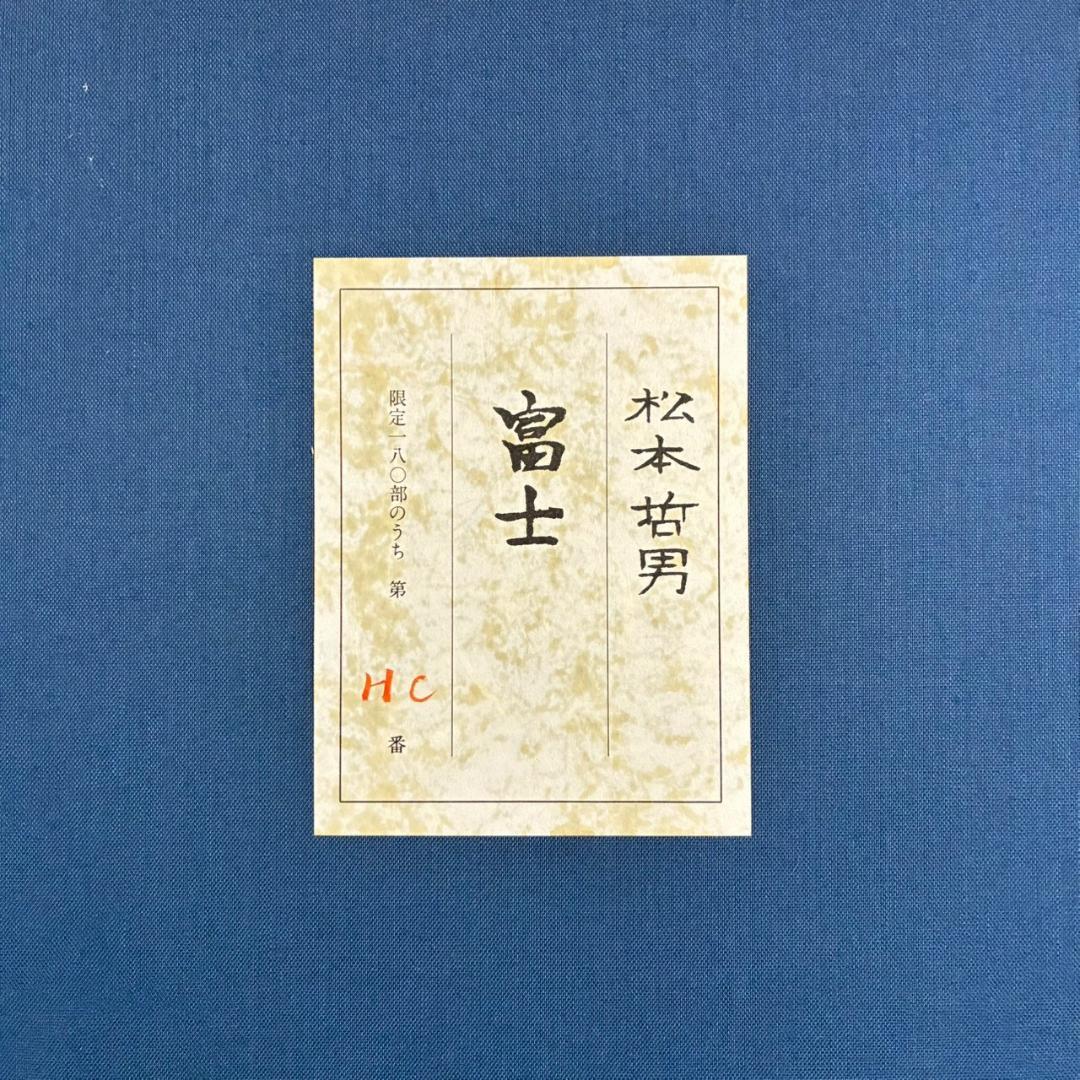 松本哲男
富士
限定一八〇部のうち 第
HC
番